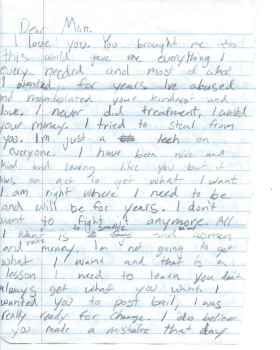 Dear Mom.
I love you. You brought me to
this world gave me everything I
every needed and most of what
I wanted, for years Ive abused
and manipulated your kindness and
love. I never did treatment, I used
your money. I tried to steal from
you. I'm just a leech on
everyone. I have been nice and
kind and loving like you but it
was an act to get what I want
I am right where I need to be
and will be for years. I don't
want to fight it anymore. All
I want is to and women
and money. I'm not going to get
what I want and that is a
lesson I need to learn you don't
always get what you want. I
wanted you to post bail, I was
really ready for change. I do believe
you made a mistake that day